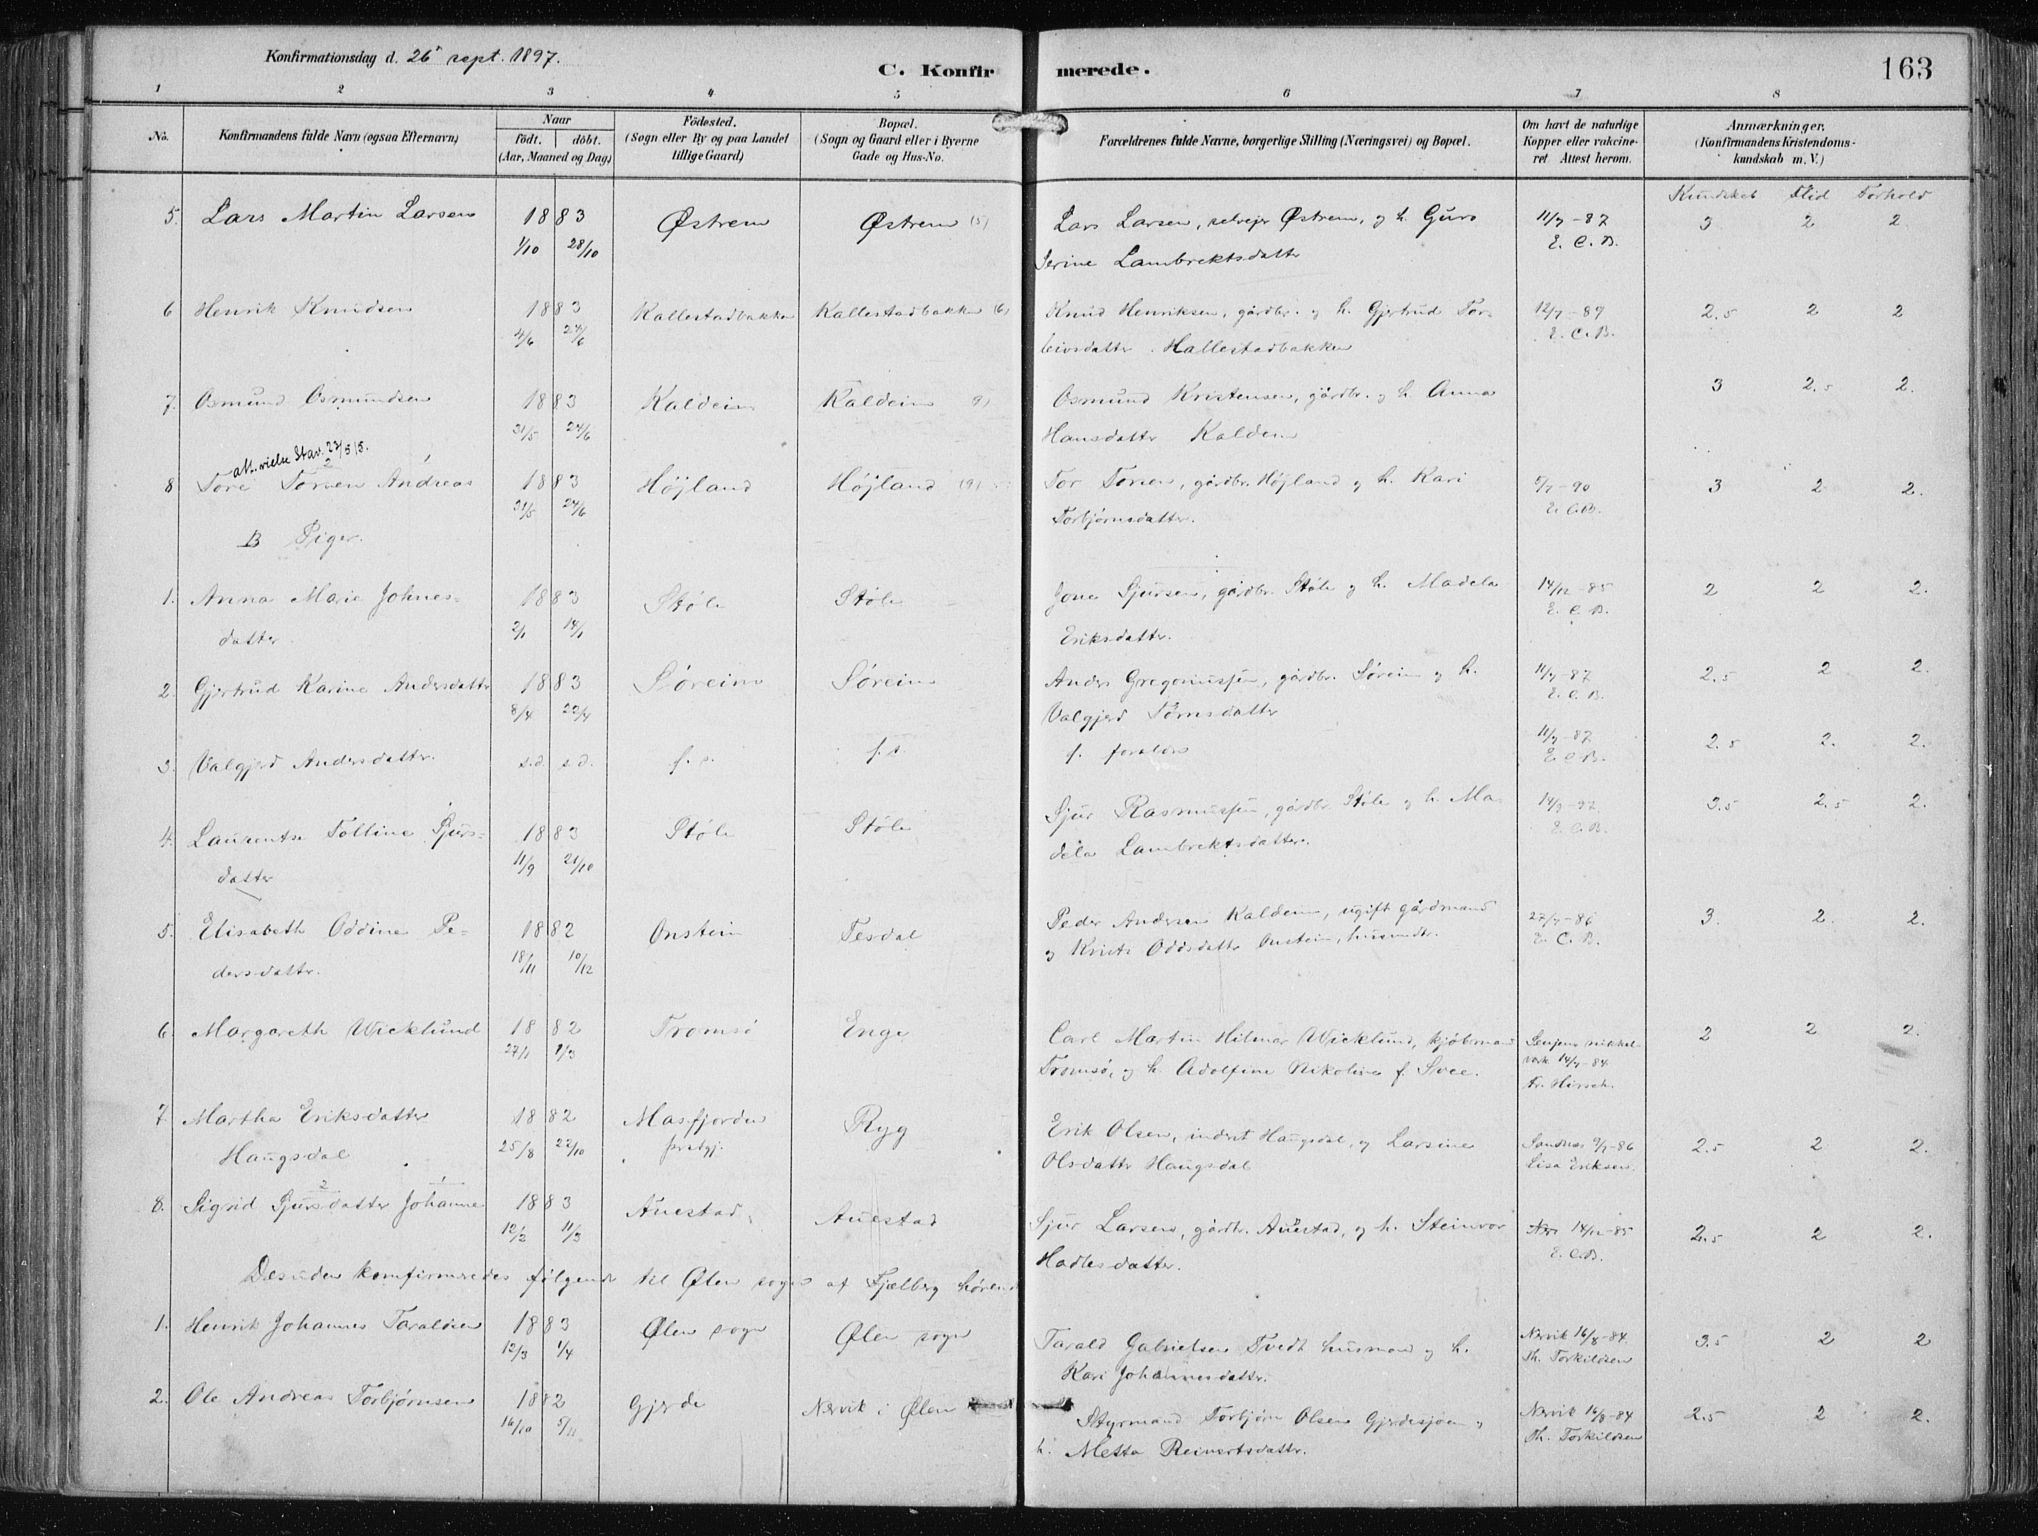 Konfirmationsdag d. 26 sept. 1897.
C. Konfirmerede.
163
1 2 3 4 5 6 7 8
No. Konfirmandens fulde Navn (ogsaa Efternavn) Naar födt. döbt. (Aar, Maaned og Dag) Födested. (Sogn eller By og paa Landet tillige Gaard) Bopæl. (Sogn og Gaard eller i Byerne Gade og Hus-No. Forældrenes fulde Navne, borgerlige Stilling (Næringsvei) og Bopæl. Om havt de naturlige Kopper eller vakcineret Attest herom. Anmærkninger, (Konfirmandens Kristendomskundskab m. V.)
Kundskab Flid Forhold
5. Lars Martin Larsen 1883 1/10 28/10 Østrem Østrem (5) Lars Larsen, selvejr Østrem, g h. Guro 11/7-87 3 2 2
Serine Lambrektsdatter E. C. B.
6 Henrik Knudsen 1883 4/6 24/6 Kallestadbakken Kallestadbakken (6) Knud Henriksen, gårdbr. g h. Gjertrud Tor- 12/7-89 2.5 2 2
leivsdatter Hallestadbakken E. C. B.
7. Osmund Osmundsen 1883 31/5 24/6 Kaldeim Kaldeim 9) Osmund Kristensen, gårdbr. g h. Anna 3 2.5 2.
Hansdatter Kaldem
att. vielse Stav. 23/5 15.
8 Tore Torsen Andreas 1883 31/5 24/6 Højland Højland (9) Tor Torsen, gårdbr. Højland g h. Kari /7-90 3 2 2.
Torbjørnsdatter. E. C. B.
B Piger.
1. Anna Marie Johnes- 1883 2/1 14/1 Støle Støle Jone Sjursen, gårdbr. Støle g h. Madela 14/12-85 2 2 2.
datter. Eriksdatter. E. C. B.
2. Gjertrud Karine Andersdatter 1883 8/4 22/4 Søreim Søreim Anders Gregoriussen, gårdbr. Søreim g h. 11/7-87 2.5 2 2.
Valgjerd Tørresdatter E. C. B.
3. Valgjerd Andersdatter. s.d. s.d. f. s. f. s. f. foraldre 11/7-87 2.5 2. 2.
E. C. B.
4. Laurentse Tolline Sjurs- 1883 11/9 21/10 Støle Støle Sjur Rasmussen, gårdbr. Støle g h. Ma- 3.5 2.5 2.
datter dela Lambrektsdatter. E. C. B.
5. Elisabeth Oddine Pe- 1882 18/11 10/12 Onstein Tesdal Peder Andersen Kaldeim, ugift gårdmand 27/7-86 3. 2. 2.
dersdatter. g Kristi Oddsdatter Onstein, husmdtr. E. C. B.
6. Margareth Wicklund 1882 27/1 1/3 Tromsø Enge Carl Martin Hilmar Wicklund, kjøbmand Senjens nikkel- 2 2 2.
Tromsø, g h. Adolfine Nikoline f. Svee. verk 14/7-84
fr. Hirsch.
7. Martha Eriksdatter 1882 25/8 22/10 Masfjorden Ryg Erik Olsen, inderst Haugsdal, g Larsine Sandnæs 9/7-86 2.5 2 2.
Haugsdal prstgj. Olsdatter Haugsdal Lisa Eriksen.
8. Sigrid Sjursdatter Johanne 1883 12/2 11/3 Auestad Auestad Sjur Larsen, gårdbr. Auestad, g h. Steinvor 14/12-85 2.5 2 2.
Hadlesdatter. E. C. B.
Desuden komfirmeredes følgende til Ølen sogn af Fjelberg hørende
1. Henrik Johannes Taraldsen 1883 12/3 1/4 Ølen sogn Ølen sogn Tarald Gabrielsen Tvedt husmand g h. Nærvik 16/8-84 3.5 2 2
Kari Johannesdatter. Th. Torkildsen
2. Ole Andreas Torbjørnsen 1882 16/10 5/11 Gjerde Nærvik i Ølen Styrmand Torbjørn Olsen Gjerdesjøen g Nærvik 16/8-84 2.5 2 2.
h. Metta Reinertsdatter. Th. Torkildsen